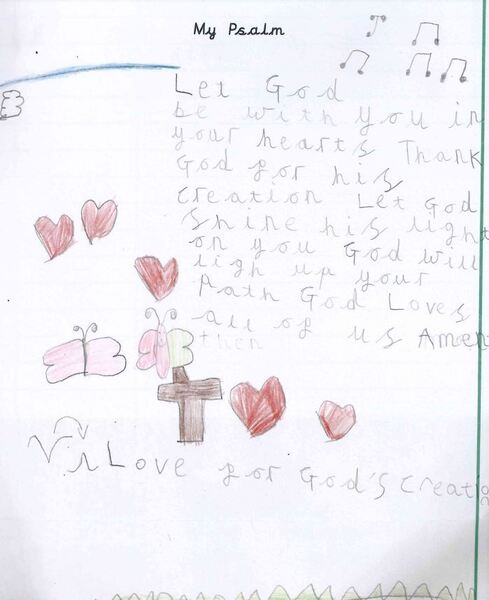 My Psalm
Let God
be with you in
your hearts Thank
God for his
creation Let God
shine his light
on you God will
ligh up your
Path God Loves
all of us Amen
then
Love for God's Creatio